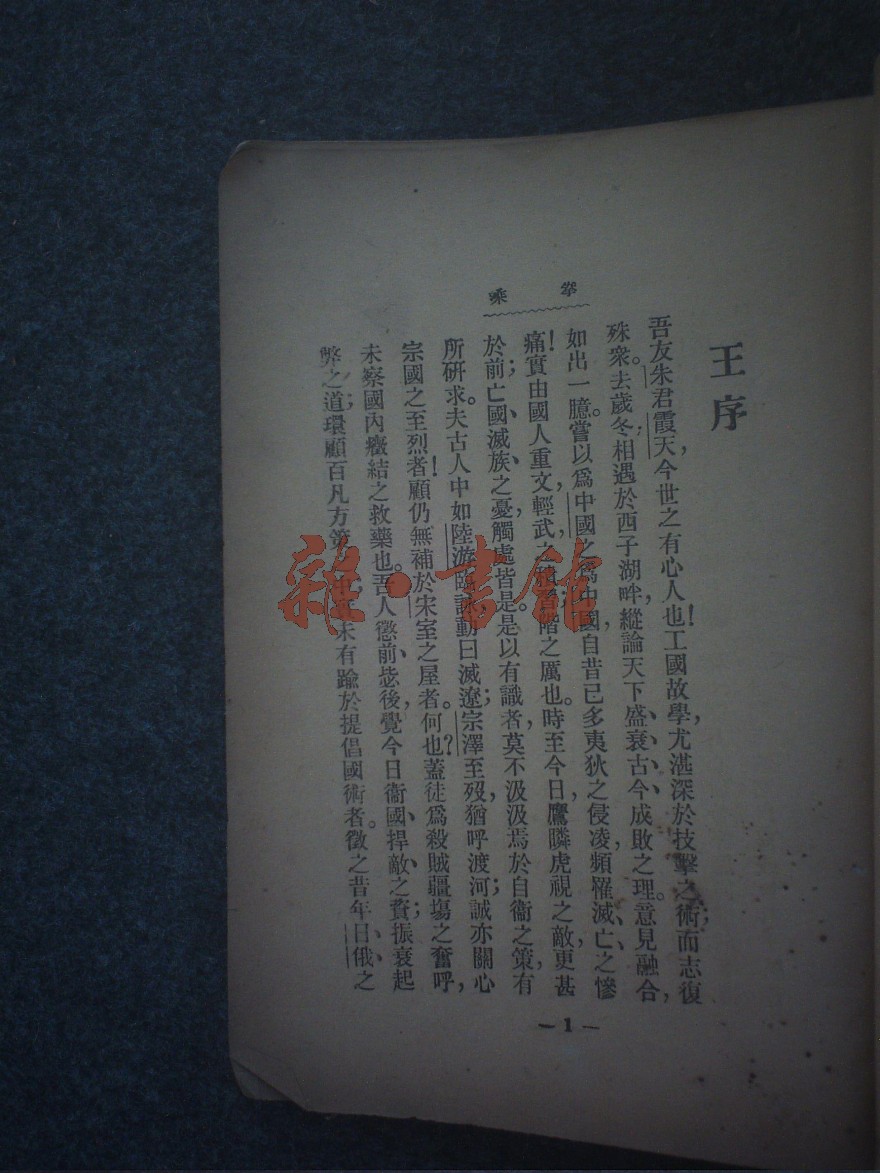 王序
拳乘
吾友朱君霞天，今世之有心人也！工國故學，尤湛深於技擊之術；而志復
殊衆。去歲冬相遇於西子湖畔，縱論天下盛衰、古今成敗之理。意見融合，
如出一臆。嘗以爲中國之爲中國，自昔已多夷狄之侵凌，頻罹滅亡之慘
痛！實由國人重文輕武之階之厲也。時至今日，鷹瞵虎視之敵，更甚
於前；亡國、滅族、之憂，觸處皆是。是以有識者，莫不汲汲焉於自衞之策，有
所研求。夫古人中如陸游臨詠，動曰滅遼；宗澤至歿，猶呼渡河；誠亦關心
宗國之至烈者！顧仍無補於宋室之屋者。何也？蓋徒爲殺賊疆場之奮呼，
未察國內癥結之救藥也。吾人懲前、毖後，覺今日衞國、捍敵、之賚；振衰起
弊、之道；環顧百凡方策之中，未有踰於提倡國術者。徵之昔年日俄、之
雜·書館
— 1 —